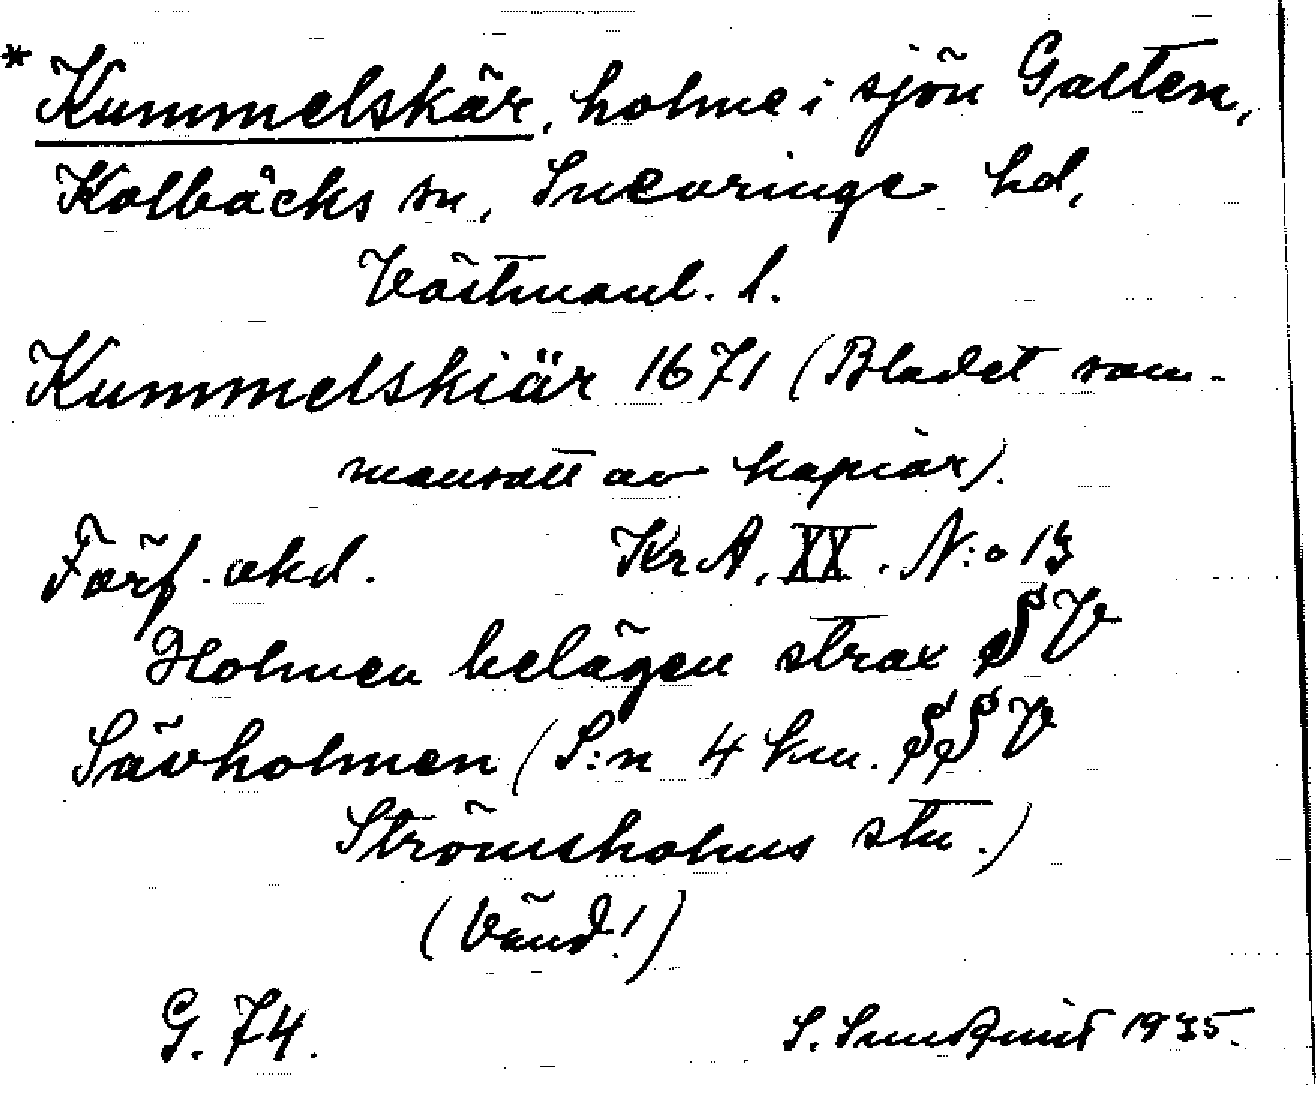 * Kummelskär, holme i sjön Galten,
Kolbäcks sn, Snevringe hd,
Västmanl. l.
Kummelskiär 1671 (Bladet sam-
mansatt av kopior).
Förf. okd. KrA, XX. N:o 13
Holmen belägen strax SV
Sävholmen (S:n 4 km. SSV
Strömsholms stn.)
(Vänd!)
G. 74. S. Sundquist 1935.